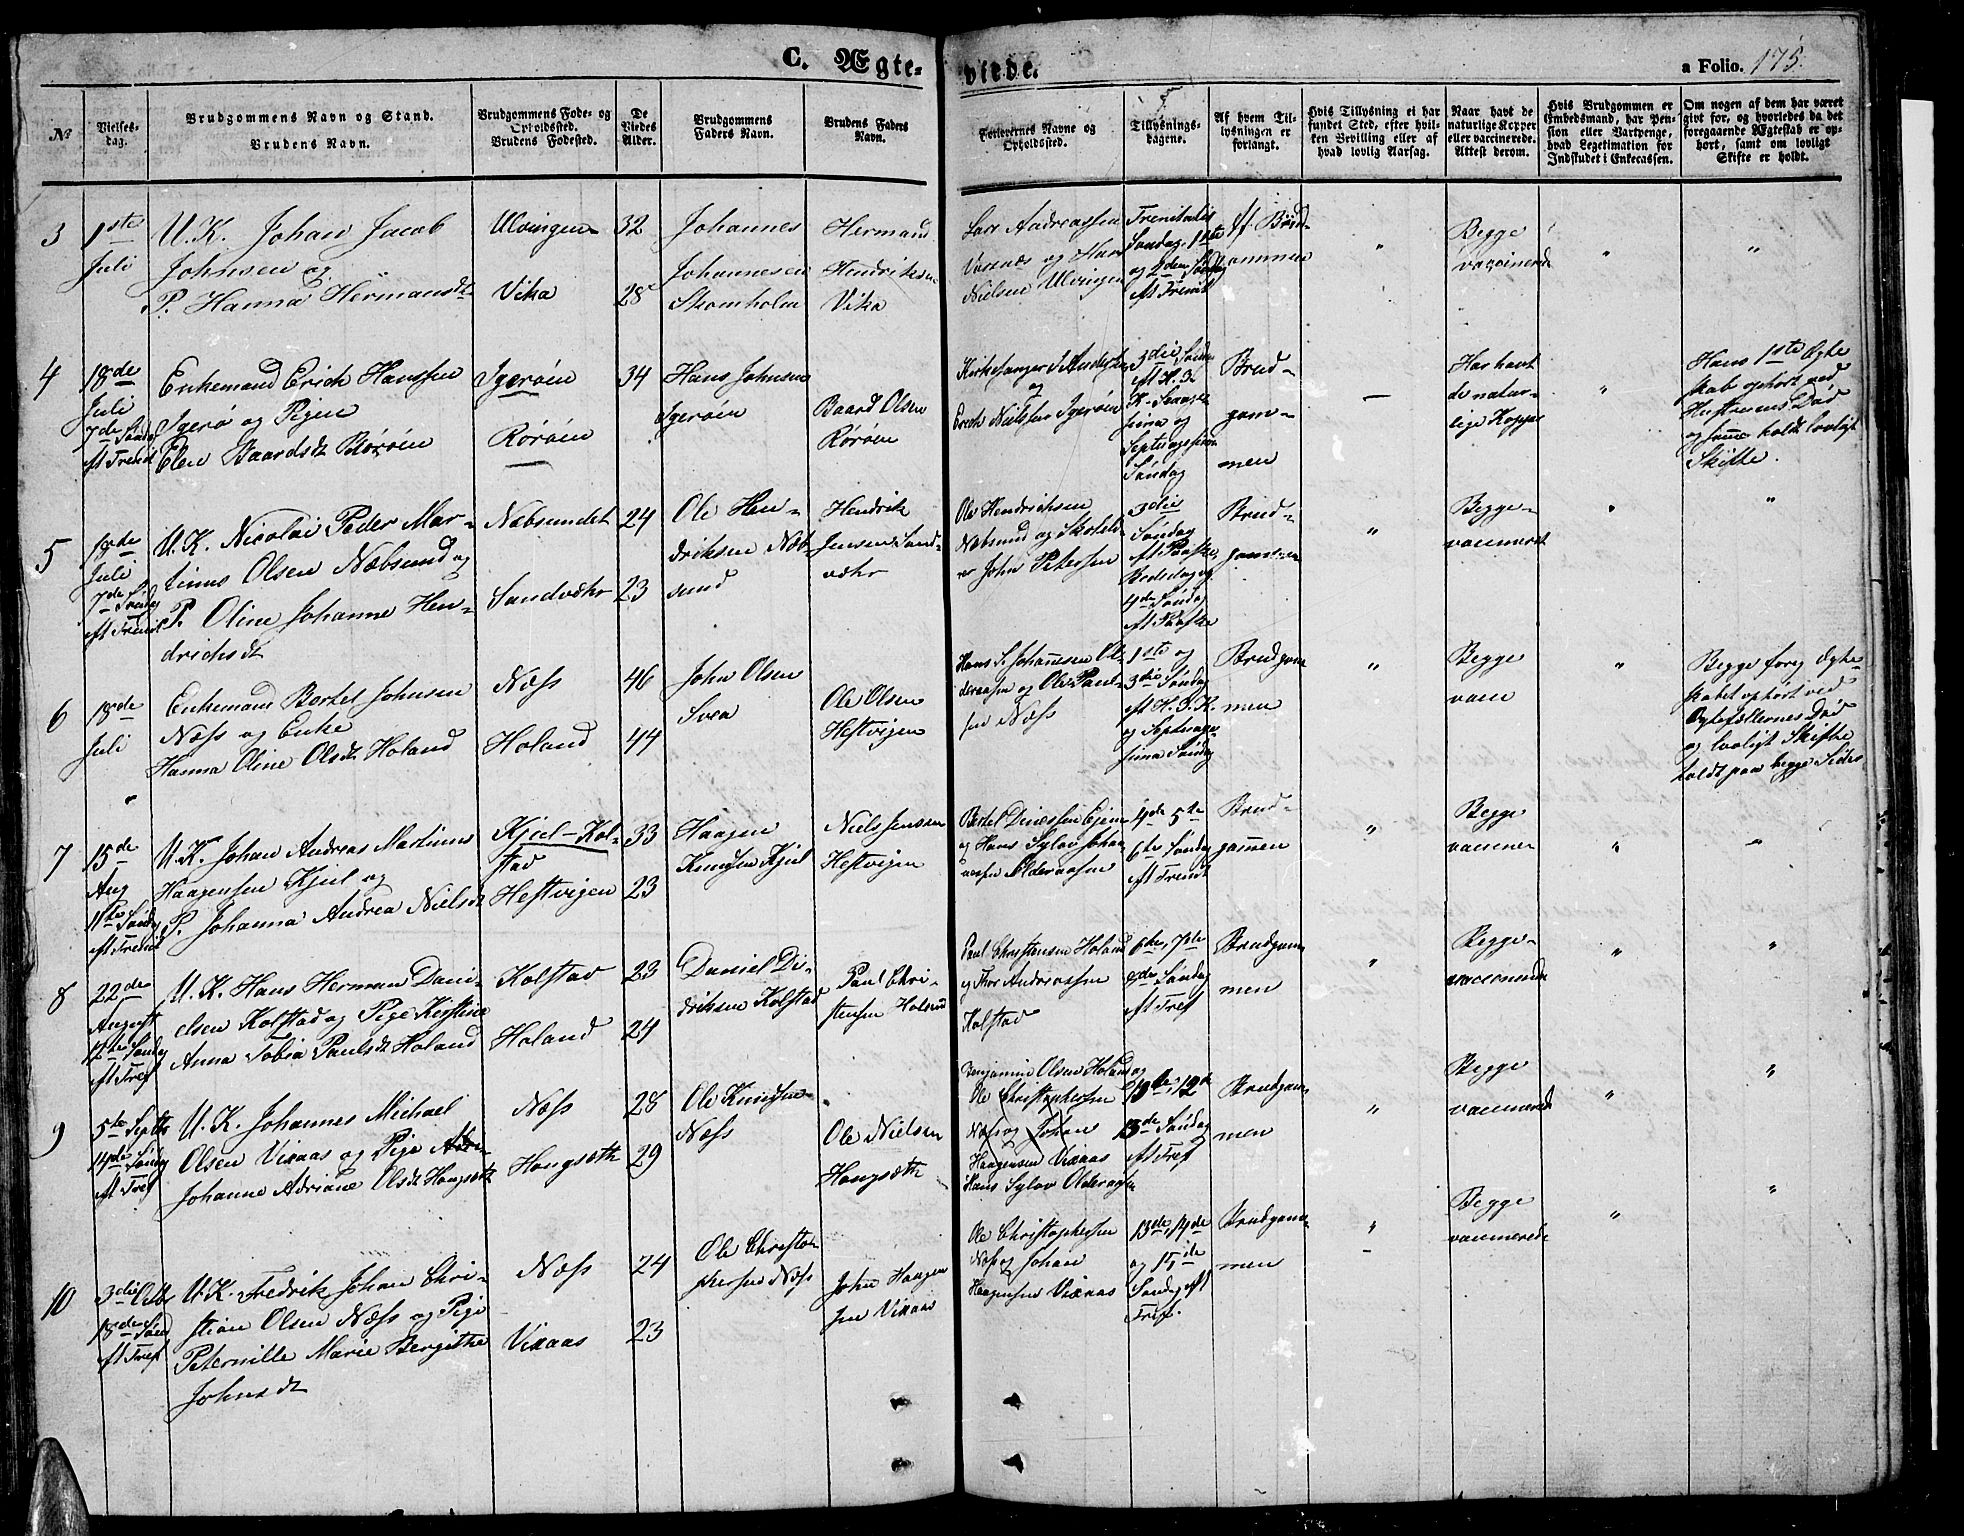 C. Ægte-
viede.
a Folio. 175.
No
Vielses-
dag.
Brudgommens Navn og Stand.
Brudens Navn.
Brudgommens Føde- og
Opholdssted.
Brudens Fødested.
De
Viedes
Alder.
Brudgommens
Faders Navn.
Brudens Faders
Navn.
Forlovernes Navne og
Opholdssted.
Tillysnings-
dagene.
Af hvem Til-
lysningen er
forlangt.
Hvis Tillysning ei har
fundet Sted, efter hvil-
ken Bevilling eller af
hvad lovlig Aarsag.
Naar havt de
naturlige Kopper
eller vaccinerede.
Attest derom.
Hvis Brudgommen er
Embedsmand, har Pen-
sion eller Vartpenge,
hvad Legetimation for
Indskudet i Enkecassen.
Om nogen af dem har været
givt før, og hvorledes da det
foregaaende Ægteskab er op-
hørt, samt om lovligt
Skifte er holdt.
3
1ste
Juli
U. K. Johan Jacob
Johnsen og
P. Hanna Hermansdt
Ulvingen
Vika
32
28
Johannes
Johannesen
Skomholm
Hermand
Hendriksen
Vika
Lars Andreassen
Vassnæs og Hans
Nielsen Ulvingen
Trenitatis
Søndag, 1ste
og 2den Søndag
eft Trenit
af Brud-
gommen
"
Begge
vaccinerede
"
"
4
18de
Juli
7de Søndag
eft Trenit
Enkemand Erich Hanssen
Igerø og Pigen
Elen Baardsdt Rørøen
Igerøen
Rørøen
34
Hans Johnsen
Igerøen
Baard Olsen
Rørøen
Kirkesanger
og
Erich Nielsen Igerøen
3die Sønd
eft H. 3
K.
sima og
Septuagesima
Søndag
Brud-
gom-
men
—
Har havt
de natur-
lige Kopper
"
Hans 1ste Ægte
skab ophørt ved
Hustruens Død
og samme holdt lovligt
Skifte.
5
18de
Juli
7de Søndag
eft Trenit
U. K. Nicolai Peder Mar-
tinus Olsen Næbsund og
P. Oline Johanne Hen-
drichsdt
Næbsundet
Sandvæhr
24
23
Ole Hen-
driksen Næb
sund
Hendrik
Jensen Sand-
væhr
Ole Hendrichsen
Næbsund og Skolelæ
rer John Petersen
3die
Søndag
eft Paaske,
Bededag og
4de Søndag
eft Paaske
Brud-
gommen
"
Begge
vaccineret
"
"
6
18de
Juli
"
Enkemand Bertel Johnsen
Næss og Enke
Hanna Oline Olsdt Holand
Næss
Holand
46
44
John Olsen
Svea
Ole Olsen
Hestvigen
Hans S. Johannesen Ol-
deraasen og Ole Paul-
sen Næss
1ste og
3die Søndag
eft H. 3. K.
og Septuage
sima Søndag
Brudgom
men
"
Begge
vacn
"
Begge forrig Ægte-
skabet ophørt ved
Ægtefællernes Død
og lovligt Skifte
holdt paa begge Sider
7
15de
Aug
11te Søndag
eft Trenit
U. K. Johan Andreas Martinus
Haagensen Kjul og
P. Johanna Andrea Nielsdt
Kjul-Kol-
stad
Hestvigen
33
23
Haagen
Knudsen Kjul
Niels Jenssen
Hestvigen
Bertel Dinessen
og Hans Sylov Johan-
nesen Olderaasen
4de 5te
6te Søndag
eft Trenit
Brud-
gommen
"
Begge
vacciner
"
"
8
22de
August
12te Søndag
eft Tref
U. K. Hans Herman Dani-
elsen Kolstad og Pige Kirstine
Anna Tobia Paulsdt Holand
Kolstad
Holand
23
24
Daniel Di-
driksen Kolstad
Paul Chri-
stensen Holand
Paul Christensen Holand
og Thor Andreassen
Kolstad
6te, 7de
8de Søndag
eft Tref
Brudgom
men
"
Begge
vaccinerede
"
"
9
5te Septbr
14de Søndag
eft Tref
U. K. Johannes Michael
Olsen Vixaas og Pige
Johanne Adriane Olsdt Hongsæth
Næss
Hongsæth
28
29
Ole Knudsen
Næss
Ole Nielsen
Hongsæth
Benjamin Olsen Holand og
Ole Christophersen
Næss og Johan
Haagensen Vixaas
Hans Sylov Olderaasen
12de
13de Søndag
eft Tref
Brudgom
men
"
Begge
vaccinerede
"
"
10
3die Octbr
18de Sønd
eft Tref
U. K. Fredrik Johan Chri-
stian Olsen Næss og Pige
Peternille Marie Bergithe
Johnsdt
Næss
Vixaas
24
23
Ole Christo-
phersen Næss
John Haagen
sen Vixaas
Ole Christophersen
Næss og Johan
Haagensen Vixaas
13de, 14de
og 15de
Søndag eft
Tref.
Brudgom
men
"
Begge
vaccinerede
"
"